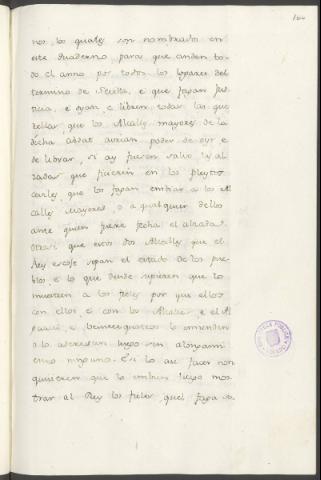 164
nos, los quales son nombrados en
este quaderno para que anden to-
do el anno por todos los logares del
termino de Sevilla, e que fagan Jus
ticia, e oyan e libren todas las que
rellas, que los Alcalles mayores de la
dicha abdat avrian poder de oyr e
de librar, si ay fueren salvo las al
zadas que fuerén en los pleytos
que los fagan embiar a los Al
calles Mayores, o a qualquier dellos
ante quien fuere fecha el alzada.
Otrosi que estos dos Alcalles que el
Rey escoje sepan el estado de los pue
blos, e lo que dende supieren que lo
muestren a los fieles por que ellos
con ellos, e con los Alcalles, e el Al
guacil, e Veinte quatros lo emienden
e lo aderescen luego sin alongami
ento ninguno. E si lo asi facer non
quisieren que lo embien luego mos
trar al Rey los fieles, quel faga